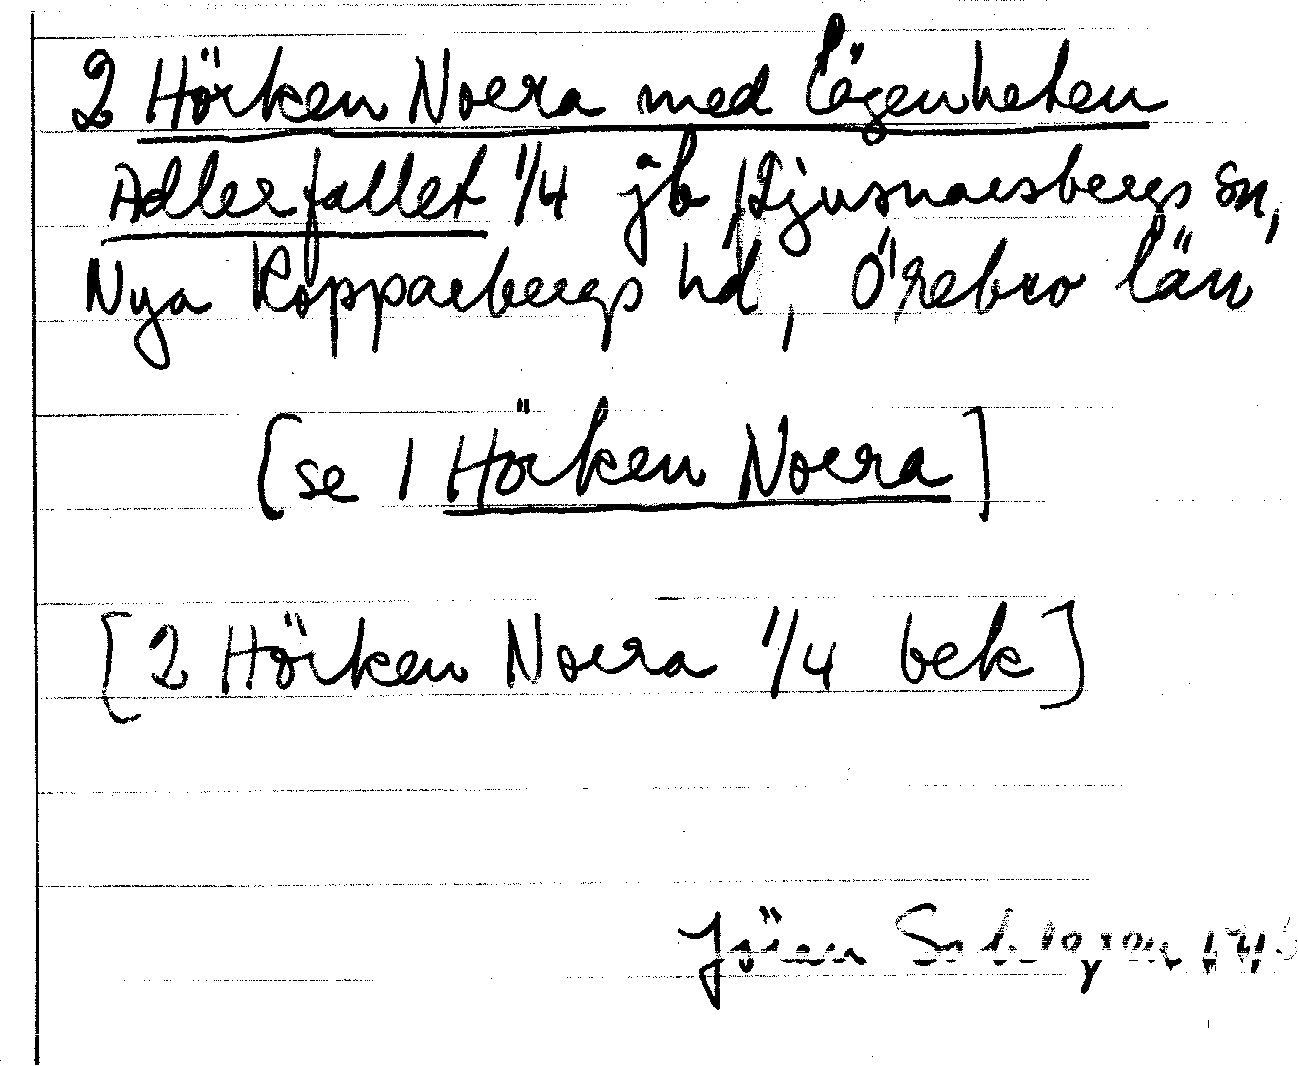 2 Hörken Norra med lägenheten
Adlerfallet 1/4 jb, Ljusnarsbergs sn,
Nya Kopparbergs hd, Örebro län
[se 1 Hörken Norra]
[2 Hörken Norra 1/4 bek]
Jöran